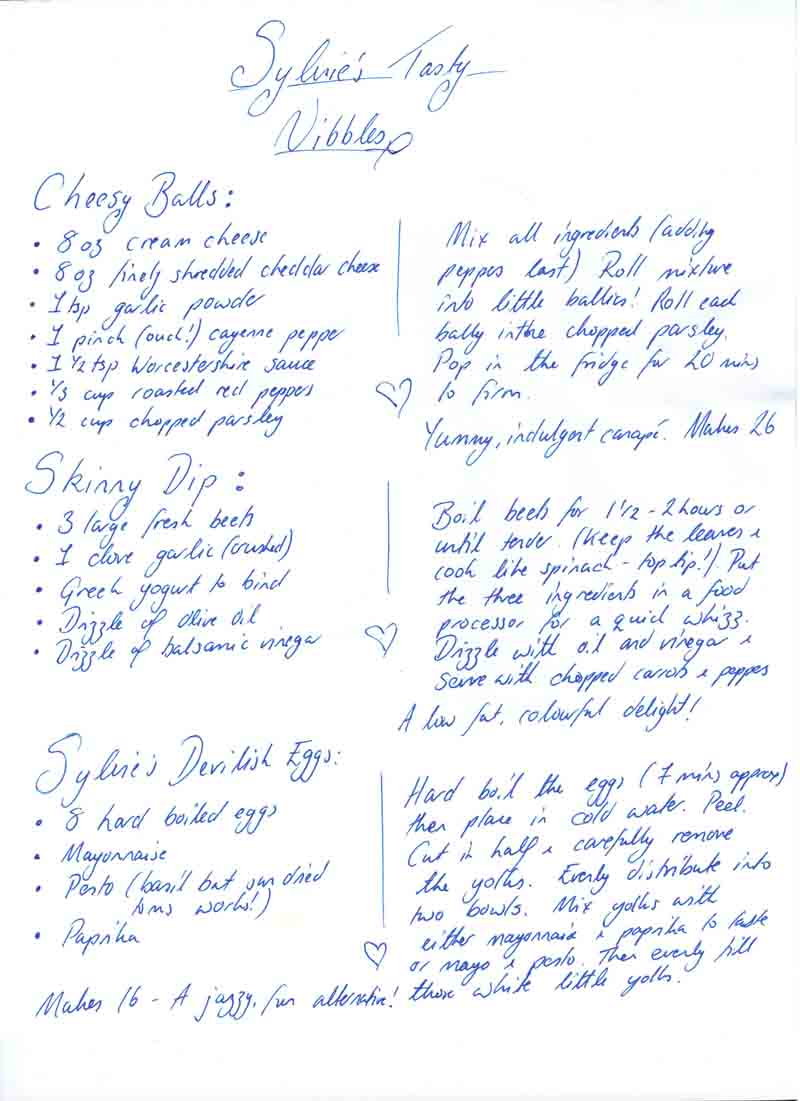 Sylvie's Tasty
Nibbles
Cheesy Balls:
• 8 oz cream cheese
• 8 oz finely shredded cheddar cheese
• 1 tsp garlic powder
• 1 pinch (ouch!) cayenne pepper
• 1 1/2 tsp Worcestershire sauce
• 1/3 cup roasted red peppers
• 1/2 cup chopped parsley
Mix all ingredients (adding
peppers last) Roll mixture
into little ballies! Roll each
bally into the chopped parsley.
Pop in the fridge for 20 mins
to firm.
Yummy, indulgent canapé. Makes 26
Skinny Dip:
• 3 large fresh beets
• 1 clove garlic (crushed)
• Greek yogurt to bind
• Drizzle of olive oil
• Drizzle of balsamic vinegar
Boil beets for 1 1/2 - 2 hours or
until tender. (Keep the leaves &
cook like spinach - top tip!). Put
the three ingredients in a food
processor for a quick whizz.
Drizzle with oil and vinegar &
serve with chopped carrots & peppers
A low fat, colourful delight!
Sylvie's Devilish Eggs:
• 8 hard boiled eggs
• Mayonnaise
• Pesto (basil but sun dried
toms works!)
• Paprika
Hard boil the eggs (7 mins approx)
then place in cold water. Peel.
Cut in half & carefully remove
the yolks. Evenly distribute into
two bowls. Mix yolks with
either mayonnaise & paprika to taste
or mayo & pesto. Then evenly fill
those white little yolks.
Makes 16 - A jazzy, fun alternative!